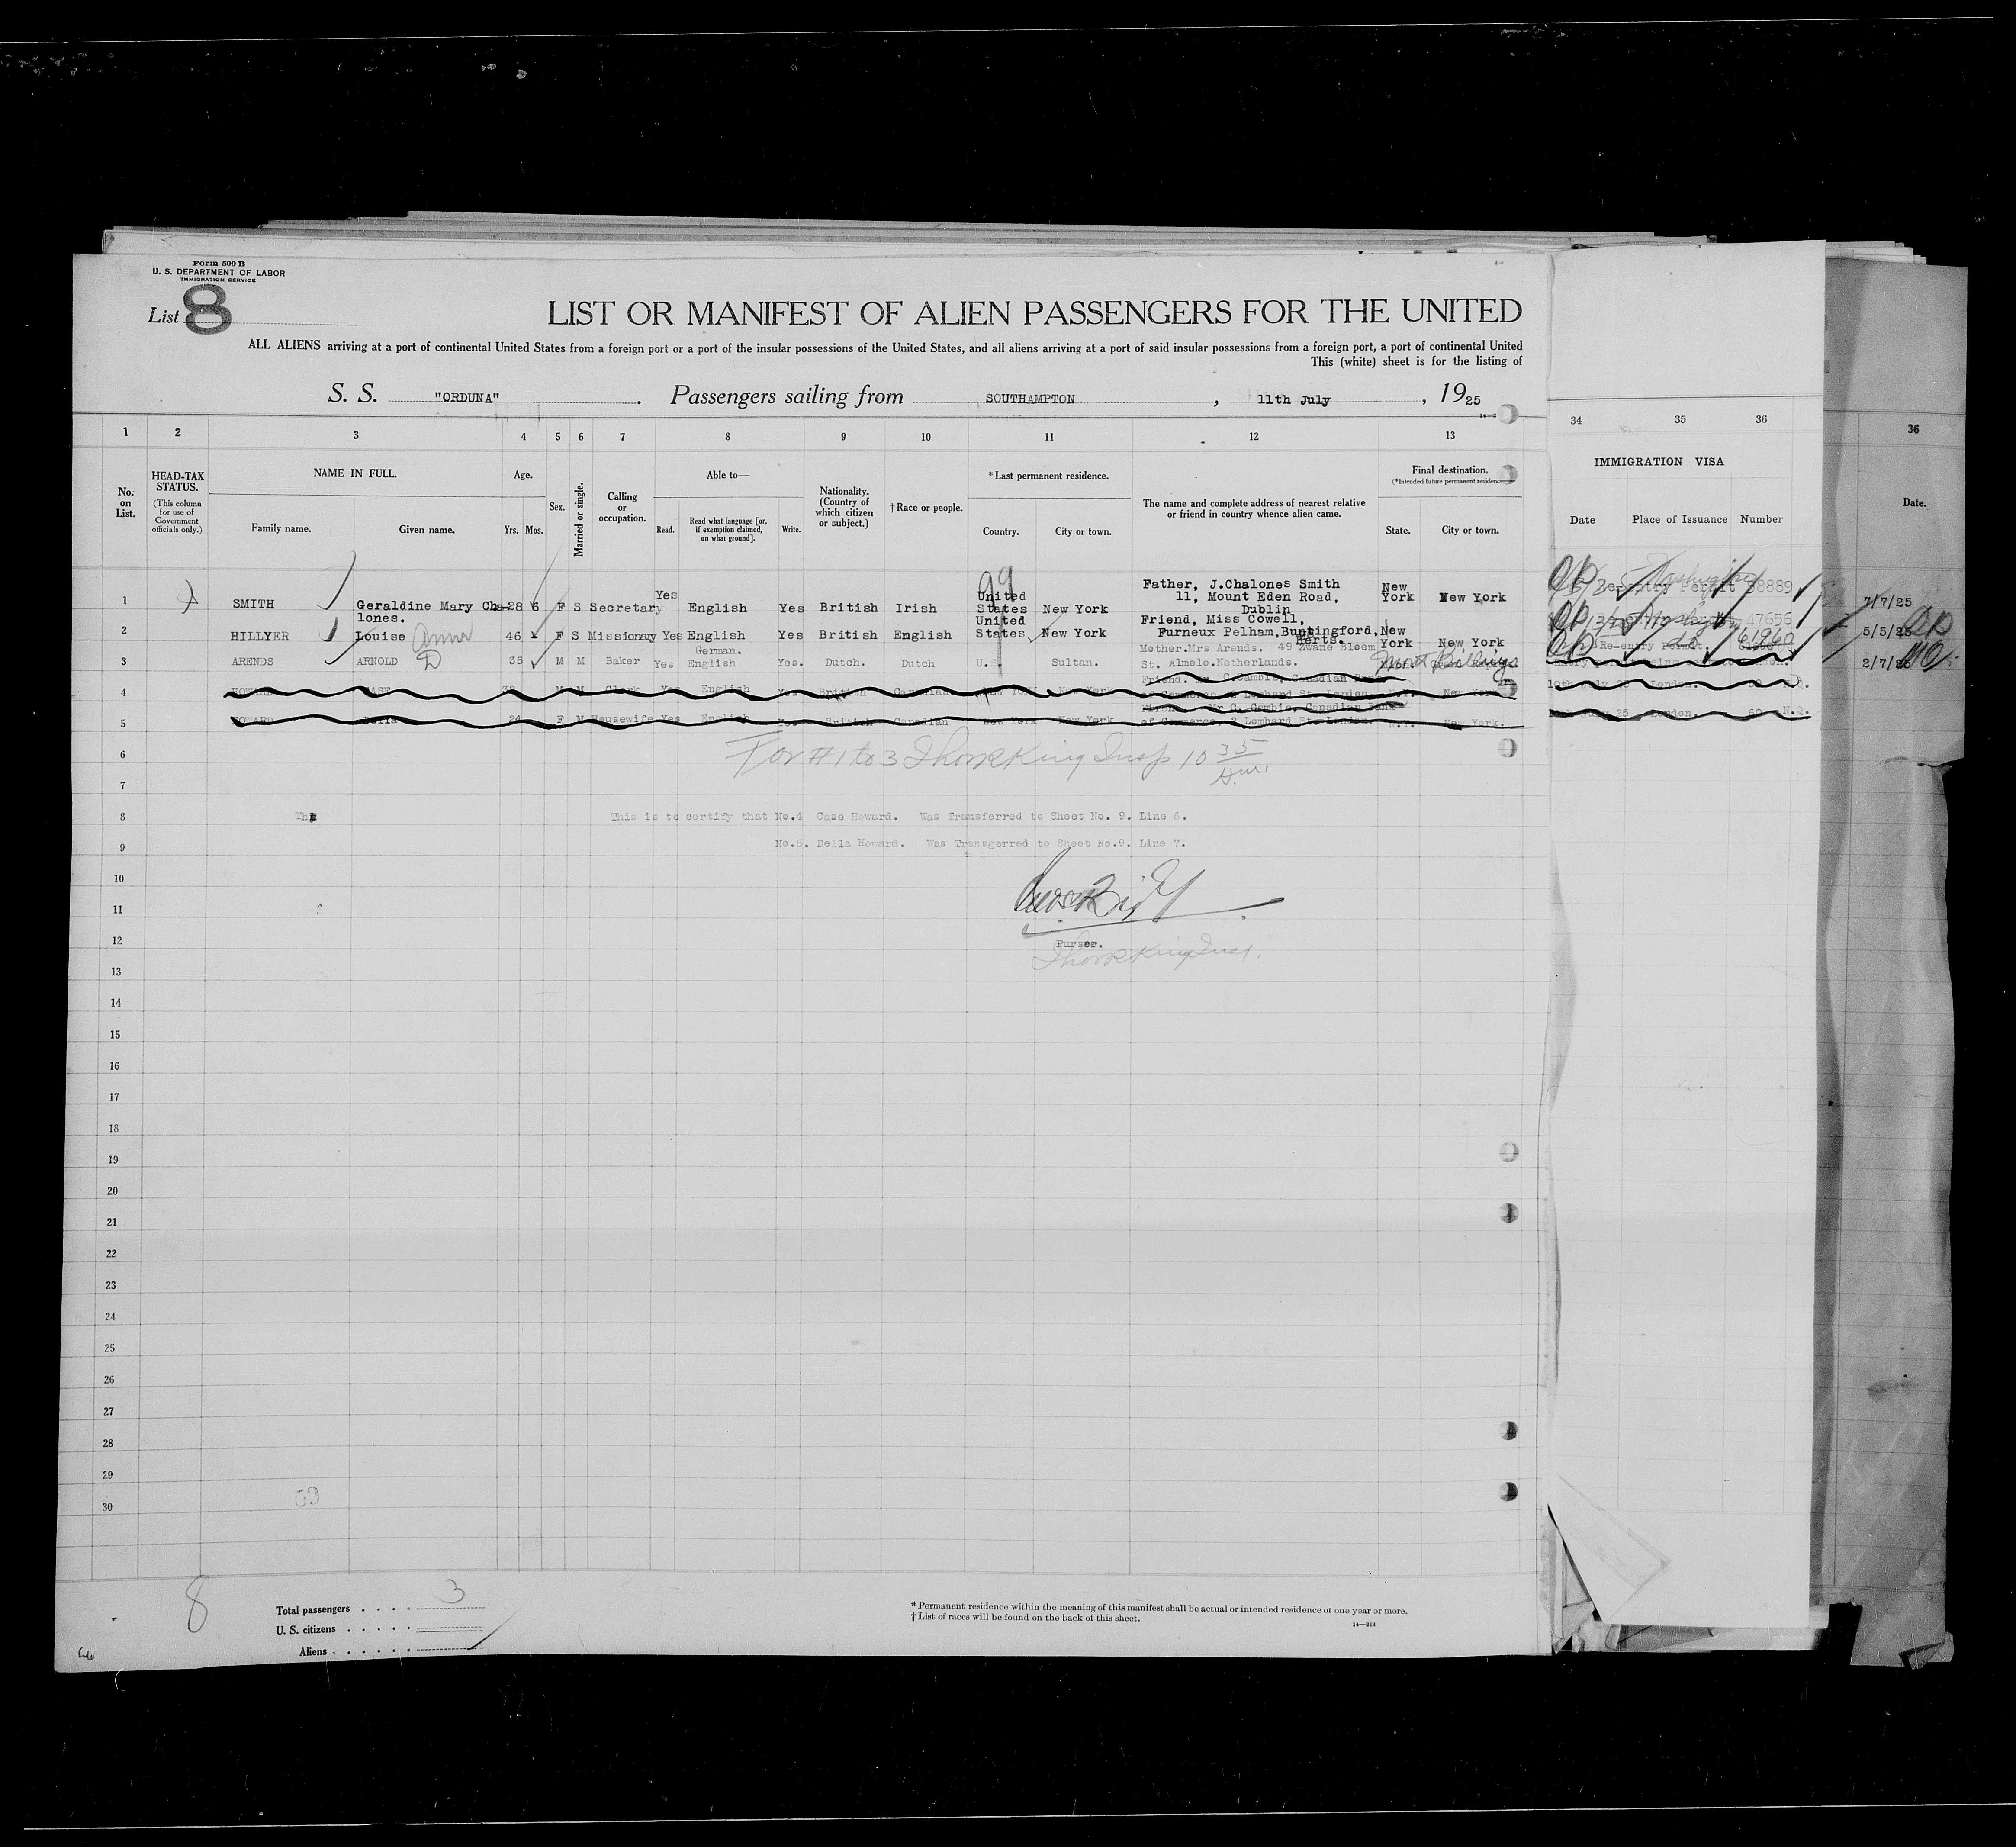 Form 500 B
U. S. DEPARTMENT OF LABOR
IMMIGRATION SERVICE
List 8
LIST OR MANIFEST OF ALIEN PASSENGERS FOR THE UNITED
ALL ALIENS arriving at a port of continental United States from a foreign port or a port of the insular possessions of the United States, and all aliens arriving at a port of said insular possessions from a foreign port, a port of continental United
This (white) sheet is for the listing of
S. S. "ORDUNA" . Passengers sailing from SOUTHAMPTON , 11th July , 1925
1 2 3 4 5 6 7 8 9 10 11 12 13 34 35 36 36
No. on List.
HEAD-TAX STATUS.
(This column for use of Government officials only.)
NAME IN FULL.
Family name. Given name.
Age.
Yrs. Mos.
Sex.
Married or single.
Calling or occupation.
Able to—
Read. Read what language [or, if exemption claimed, on what ground]. Write.
Nationality. (Country of which citizen or subject.)
† Race or people.
*Last permanent residence.
Country. City or town.
The name and complete address of nearest relative or friend in country whence alien came.
Final destination.
(*Intended future permanent residence)
State. City or town.
IMMIGRATION VISA
Date Place of Issuance Number
Date.
1 SMITH Geraldine Mary Cha- 28 6 F S Secretary Yes English Yes British Irish United States New York Father, J.Chalones Smith New York New York 7/7/25
lones. 11, Mount Eden Road,
Dublin
2 HILLYER Louise Anne 46 F S Missionary Yes English Yes British English United States New York Friend, Miss Cowell, New York New York 47656 5/5/25
Furneux Pelham, Buntingford,
Herts.
3 ARENDS ARNOLD D 35 M M Baker Yes German. English Yes. Dutch. Dutch U.S. Sultan. Mother.Mrs Arends. 49 Zwane Bloem Mont Billings Re-entry Permit. 61960 2/7/25
St. Almelo.Netherlands.
4 HOWARD CASE M M Clerk Yes English Yes British Canadian New York New York Friend. Mr. C.Gambie, Canadian Bank
of Commerce. 2 Lombard St. London. N.Y. New York 10th July 25 London. N.Q.
5 HOWARD Della 24 F M Housewife Yes English Yes British Canadian New York New York Friend. Mr C. Gambie, Canadian Bank
of Commerce. 2 Lombard St. London. N.Y. New York. July 25 London. 60 N.Q.
6 For #1 to 3 Insp 10 35
7
8 This This is to certify that No.4 Case Howard. Was Transferred to Sheet No. 9. Line 6.
9 No.5. Della Howard. Was Transgerred to Sheet No.9. Line 7.
10
11
12 Purser.
13
14
15
16
17
18
19
20
21
22
23
24
25
26
27
28
29
30
50
8
Total passengers . . . . 3
U. S. citizens . . . . .
Aliens . . . . . .
* Permanent residence within the meaning of this manifest shall be actual or intended residence of one year or more.
† List of races will be found on the back of this sheet.
14—213